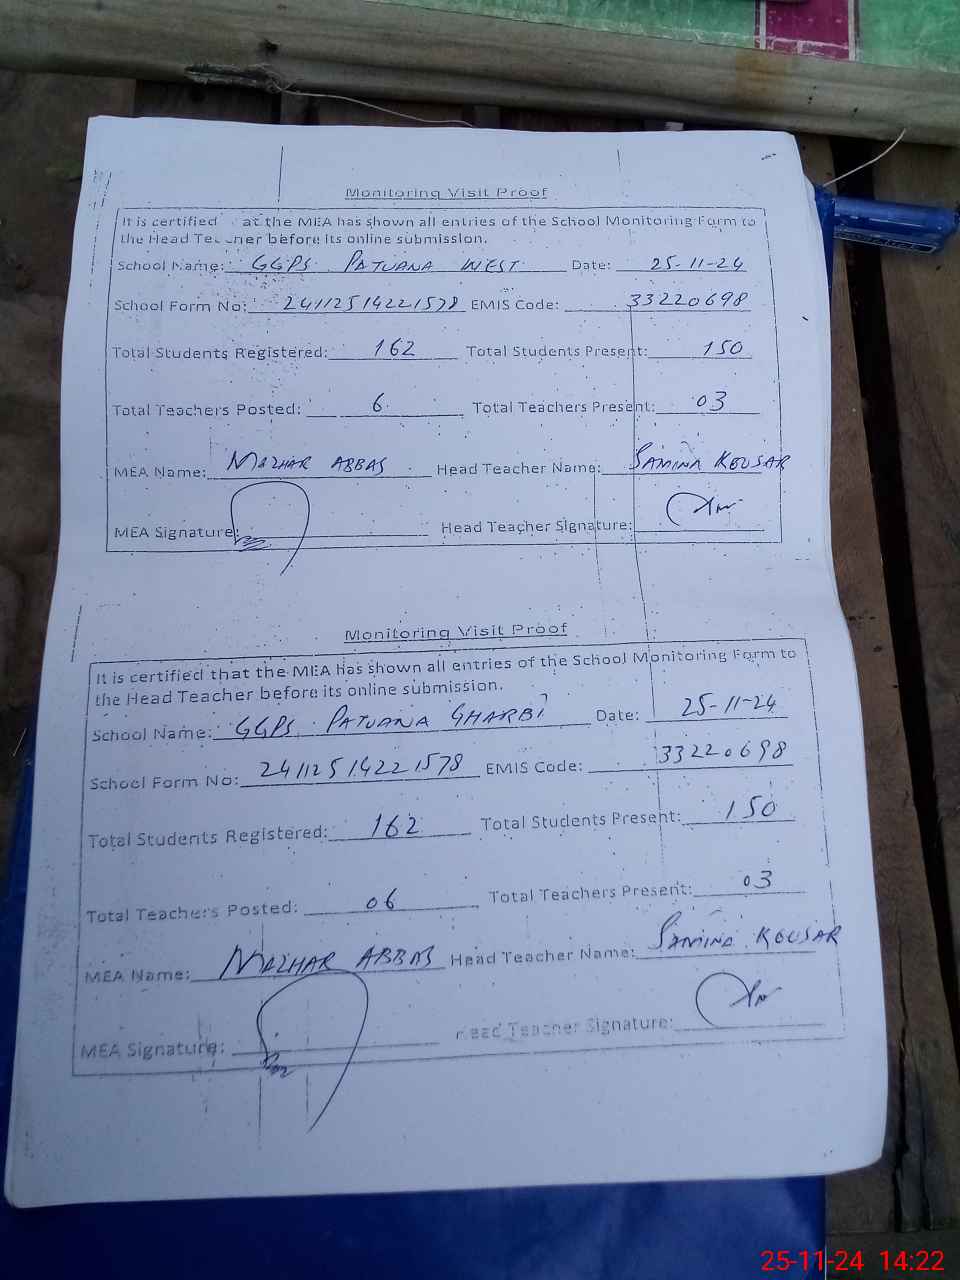 Monitoring Visit Proof
It is certified at the MEA has shown all entries of the School Monitoring Form to
the Head Teacher before its online submission.
School Name: GGPS PATUANA WEST Date: 25-11-24
School Form No: 24112514221578 EMIS Code: 33220698
Total Students Registered: 162 Total Students Present: 150
Total Teachers Posted: 6 Total Teachers Present: 03
MEA Name: MAZHAR ABBAS Head Teacher Name: SAMINA KOUSAR
MEA Signature: Head Teacher Signature:
Monitoring Visit Proof
It is certified that the MEA has shown all entries of the School Monitoring Form to
the Head Teacher before its online submission.
School Name: GGPS PATUANA GHARBI Date: 25-11-24
School Form No: 24112514221578 EMIS Code: 33220698
Total Students Registered: 162 Total Students Present: 150
Total Teachers Posted: 06 Total Teachers Present: 03
MEA Name: MAZHAR ABBAS Head Teacher Name: SAMINA KOUSAR
MEA Signature: Head Teacher Signature:
25-11-24 14:22